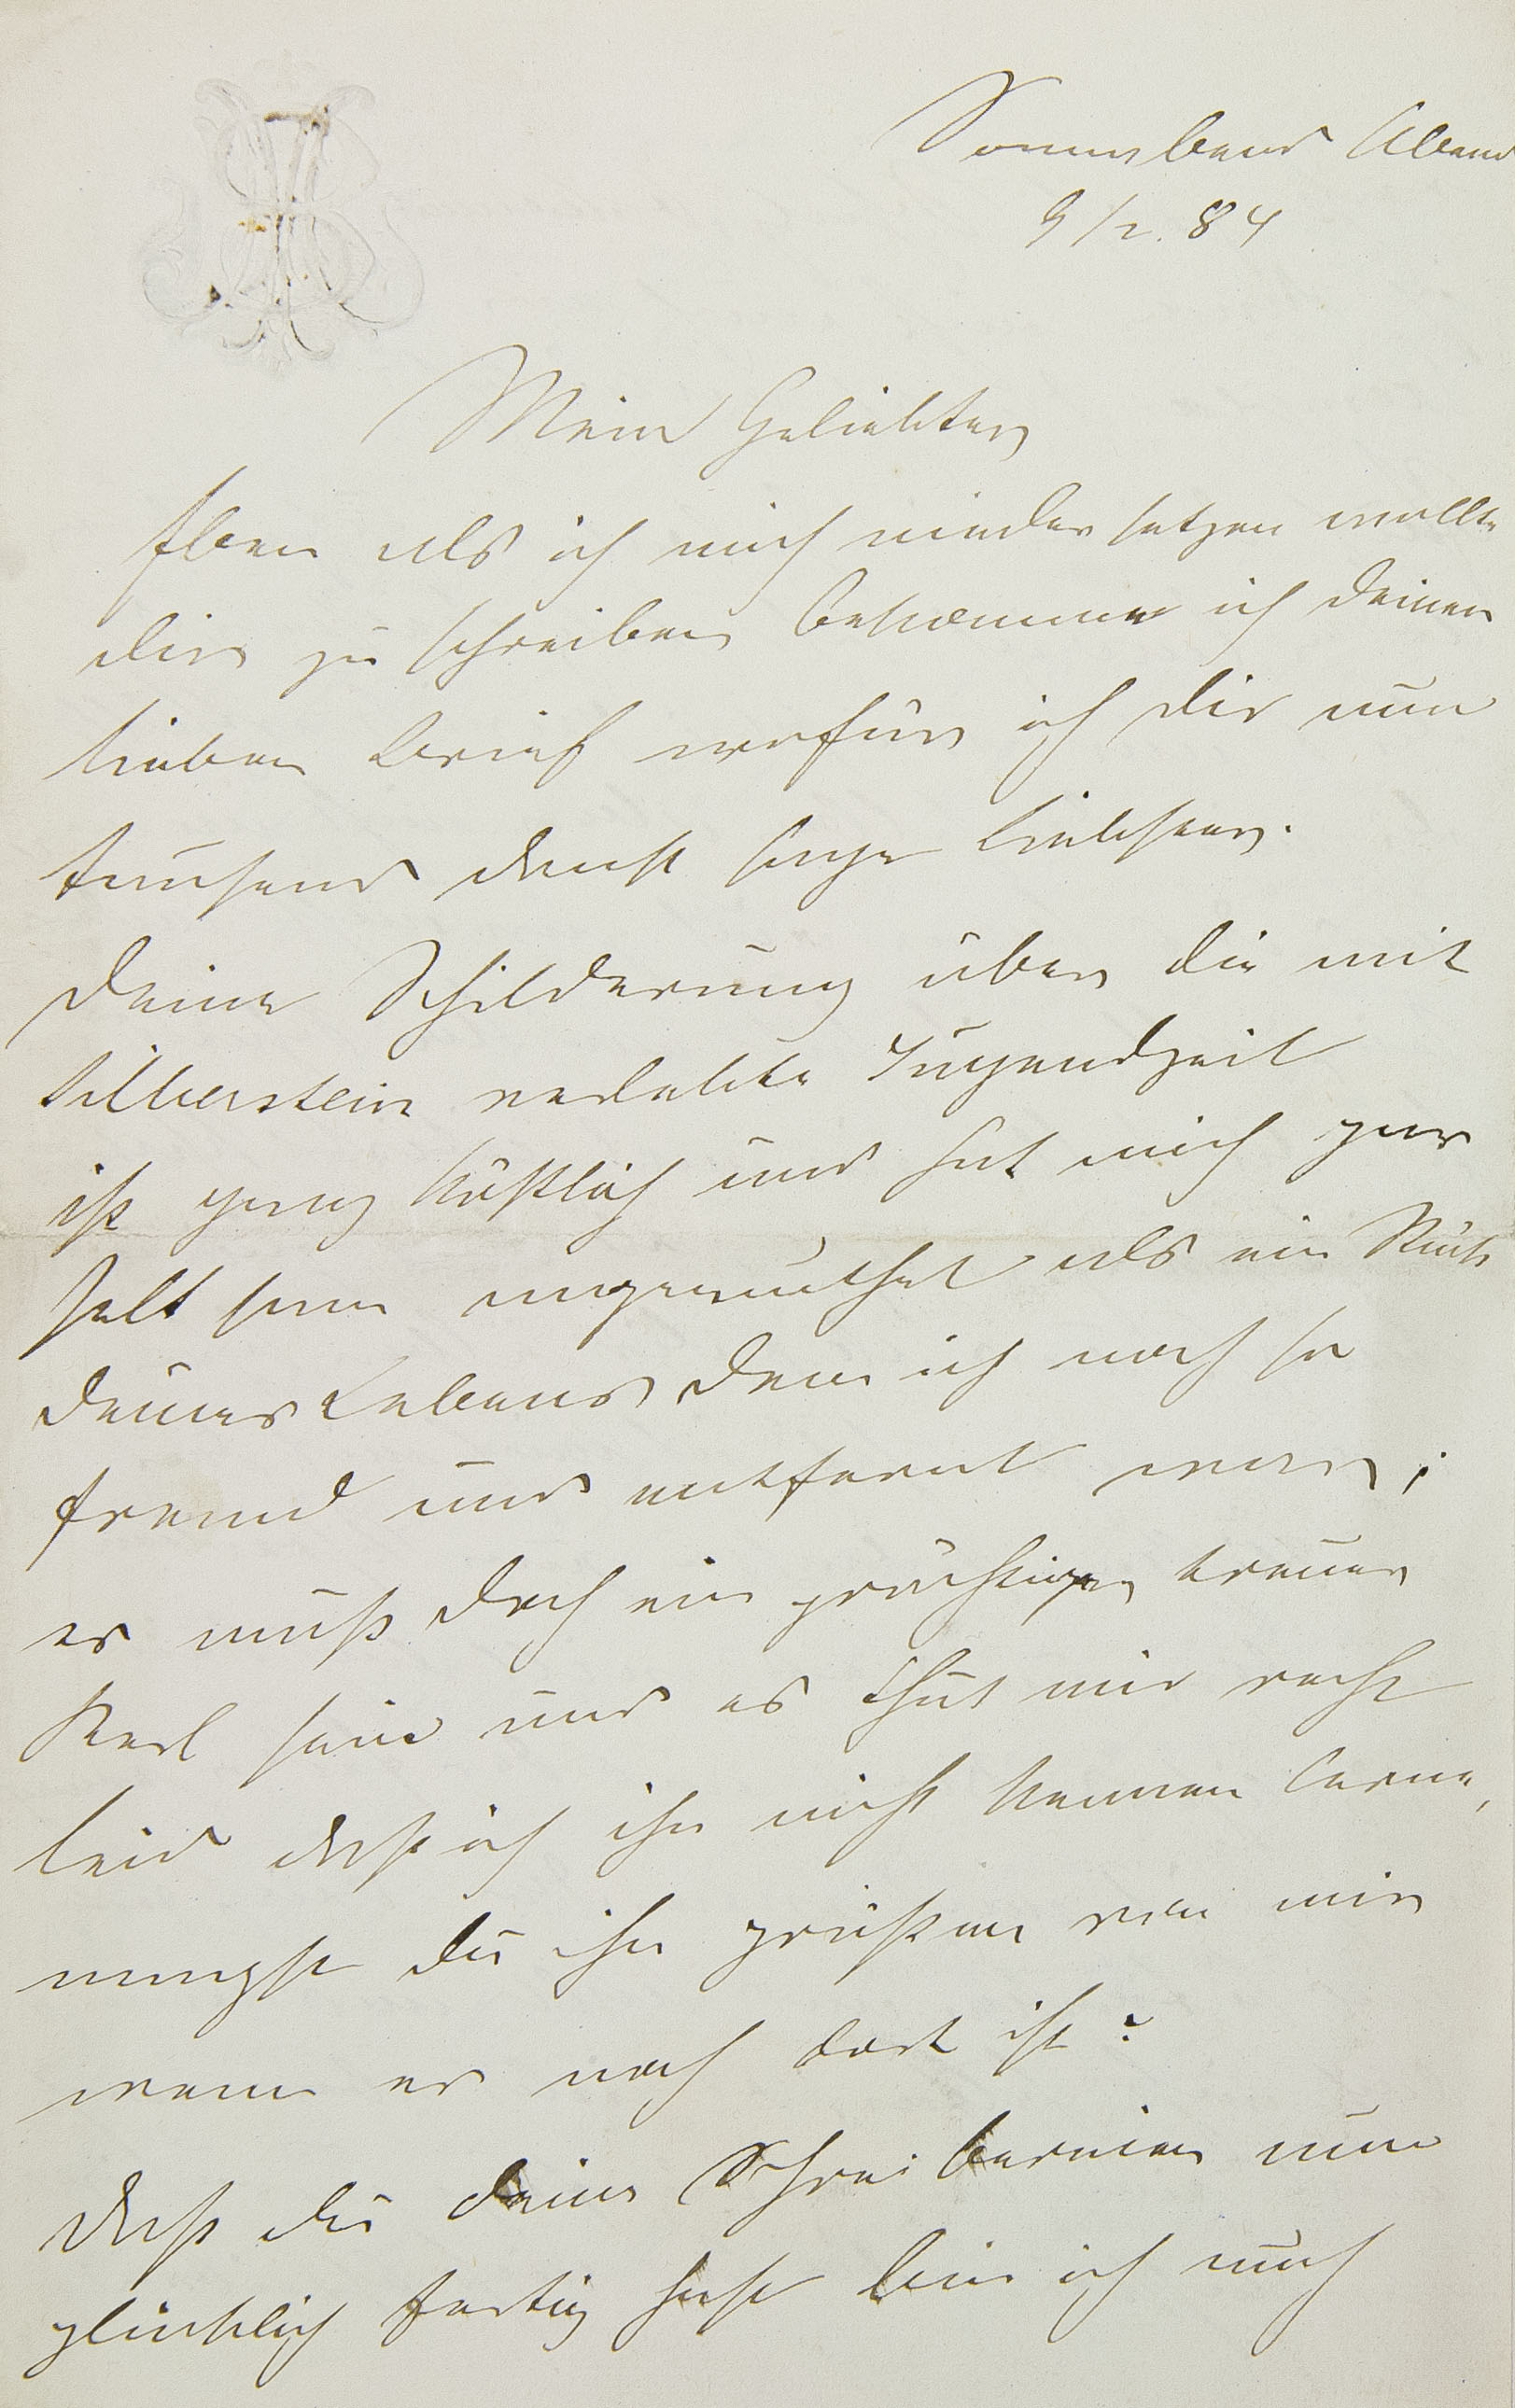 Sonnabend Abend
9/2. 84
Mein Geliebter
Eben als ich mich nieder setzen wollte
dir zu schreiben bekomme ich deinen
lieben Brief wofür ich dir nun
tausend dank sage Liebster.
deine Schilderung über die mit
Silberstein verlebte Jugendzeit
ist ganz köstlich und hat mich gar
seltsam angemuthet als ein Stück
deines Lebens dem ich noch so
fremd und entfernt war;
er muß doch ein prächtiger treuer
Kerl sein und es thut mir recht
leid daß ich ihn nicht kennen lerne,
magst du ihn grüßen von mir
wenn er noch dort ist?
daß du deine Schreibereien nun
glücklich fertig hast bin ich auch